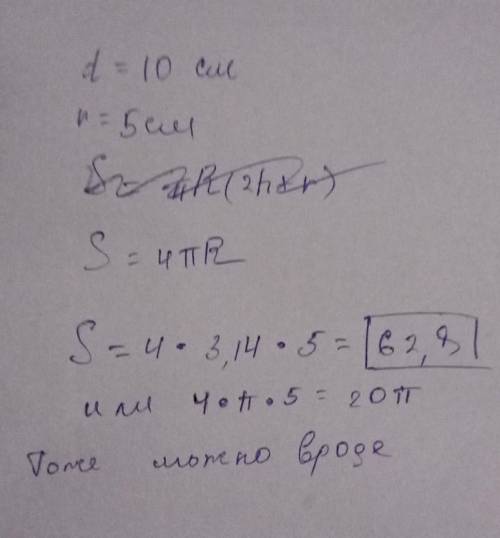 d = 10 см
r = 5 см
S = 4πR
S = 4 • 3,14 • 5 = 62,8
или 4 • π • 5 = 20π
Тоже можно вроде